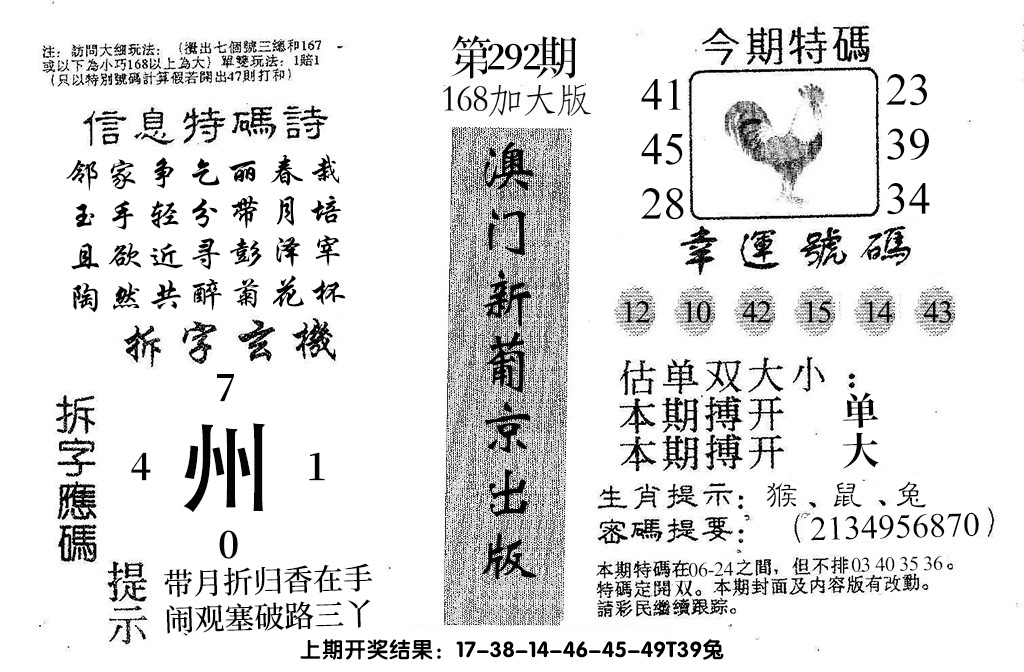 注：訪問大细玩法：（攪出七個號三總和167
或以下為小巧168以上為大）單雙玩法：1賠1
（只以特別號碼計算假若開出47則打和）
信息特碼詩
邻家争乞丽春栽
玉手轻分带月培
且欲近寻彭泽宰
陶然共醉菊花杯
拆字玄機
拆字應碼
7
4 州 1
0
提示
带月折归香在手
闹观塞破路三丫
第292期
168加大版
澳门新葡京出版
今期特碼
41 23
45 39
28 34
幸運號碼
12 10 42 15 14 43
估单双大小：
本期搏开 单
本期搏开 大
生肖提示：猴、鼠、兔
密碼提要：（2134956870）
本期特碼在06-24之間，但不排03 40 35 36。
特碼定開双。本期封面及内容版有改動。
請彩民繼續跟踪。
上期开奖结果：17-38-14-46-45-49T39兔